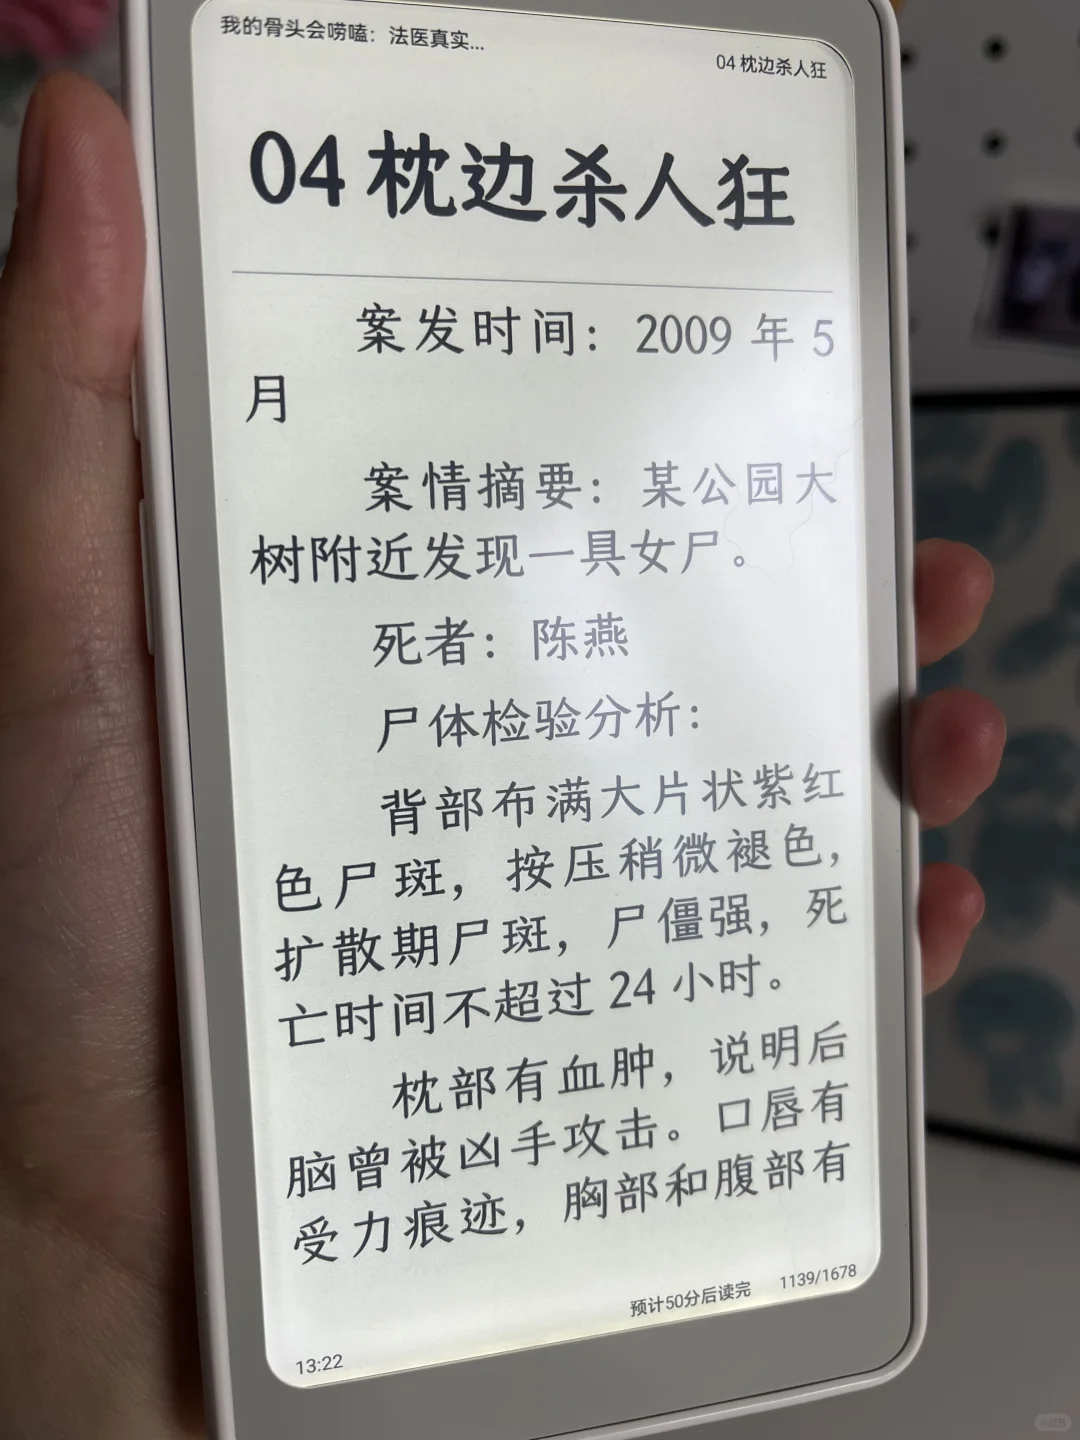 我的骨头会唠嗑：法医真实...
04 枕边杀人狂
04 枕边杀人狂
案发时间：2009 年 5
月
案情摘要：某公园大
树附近发现一具女尸。
死者：陈燕
尸体检验分析：
背部布满大片状紫红
色尸斑，按压稍微褪色，
扩散期尸斑，尸僵强，死
亡时间不超过 24 小时。
枕部有血肿，说明后
脑曾被凶手攻击。口唇有
受力痕迹，胸部和腹部有
预计50分后读完 1139/1678
13:22
小红书